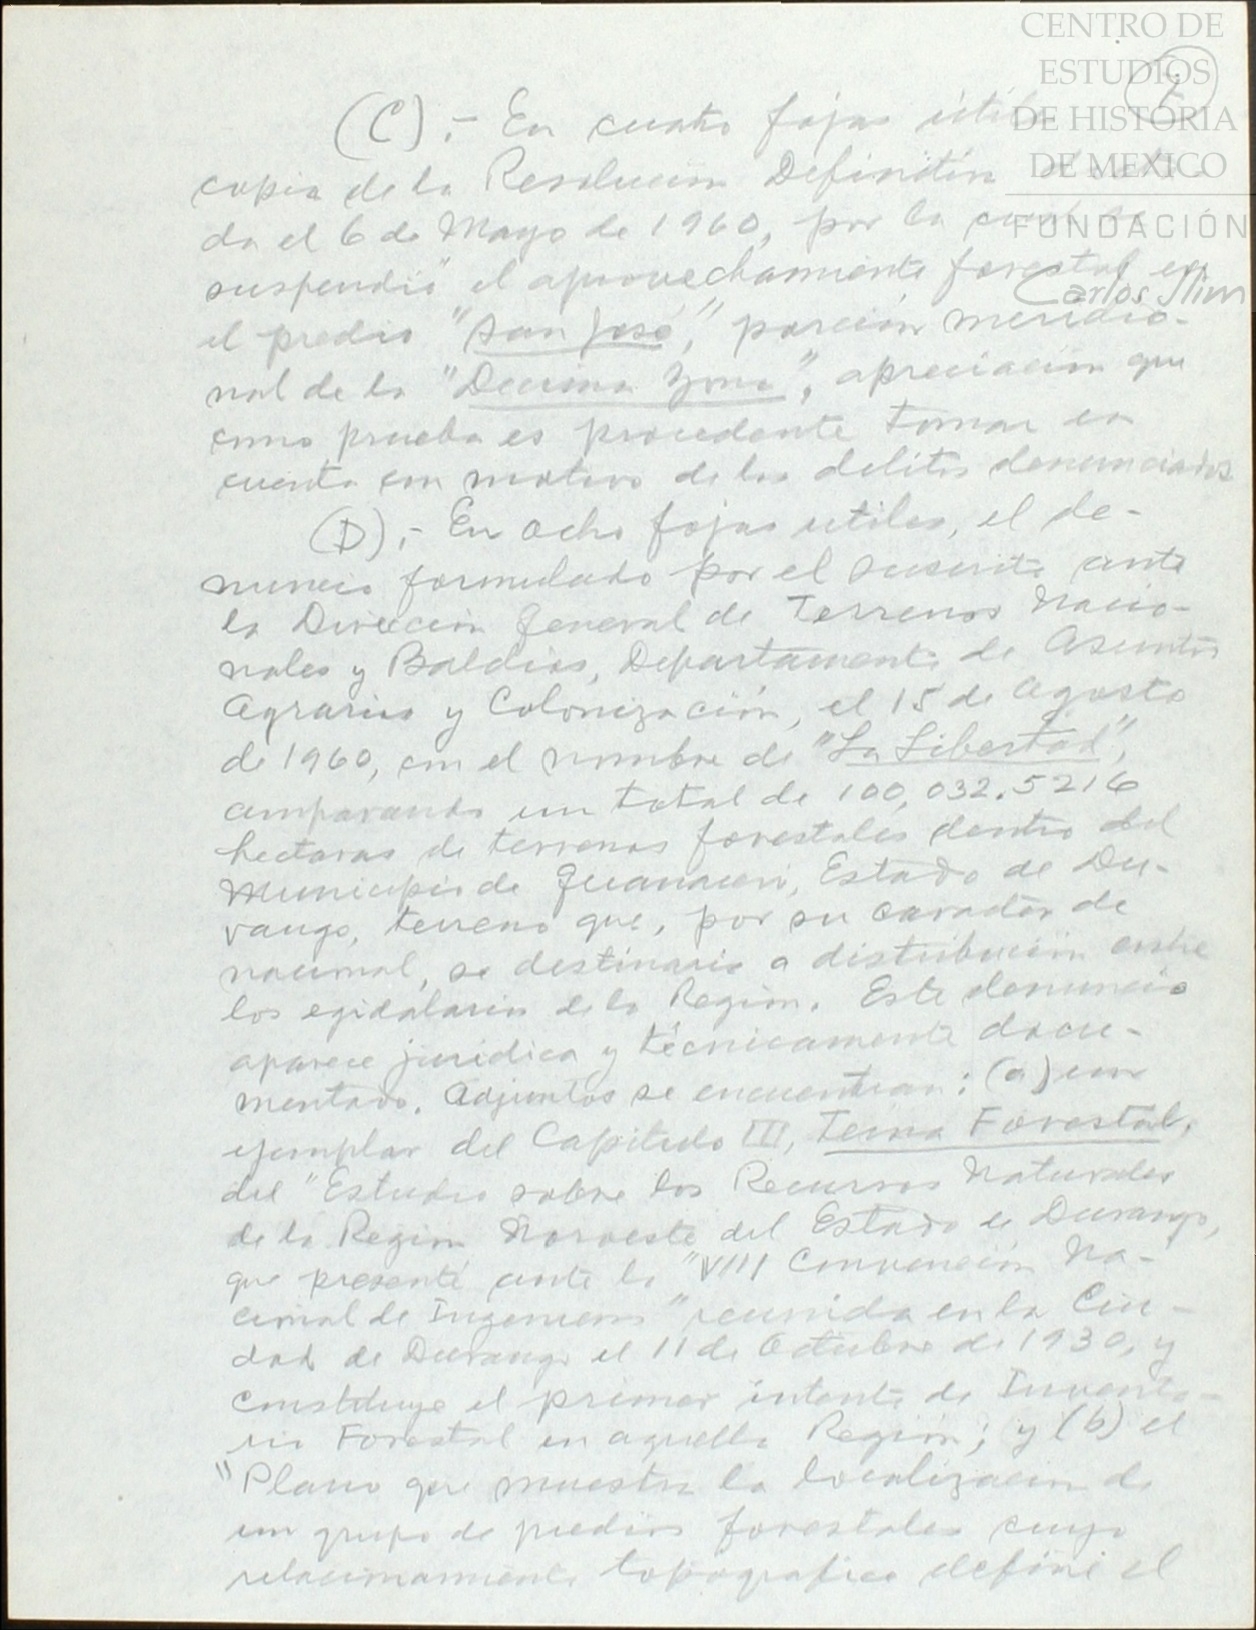 CENTRO DE
ESTUDIOS
DE HISTORIA
DE MEXICO
FUNDACIÓN
Carlos Slim
(C).- En cuatro fojas útiles
copia de la Resolución Definitiva
da el 6 de Mayo de 1960, por la cual se
suspendió el aprovechamiento forestal en
el predio "San José", porción meridio-
nal de la "Decima Zona", apreciación que
como prueba es procedente tomar en
cuenta con motivo de los delitos denunciados
(D).- En ocho fojas utiles, el de-
nuncio formulado por el suscrito ante
la Dirección General de Terrenos Nacio-
nales y Baldios, Departamento de Asuntos
Agrarios y Colonización, el 15 de Agosto
de 1960, con el nombre de "La Libertad",
amparando un total de 100,032.5216
hectaras de terrenos forestales dentro del
Municipio de Guanacevi, Estado de Du-
rango, terreno que, por su caracter de
nacional, se destinaria a distribución entre
los egidatarios de la Región. Este denuncio
aparece juridica y técnicamente docu-
mentado. Adjuntos se encuentran: (a) un
ejemplar del Capitulo III, Tema Forestal,
del "Estudio sobre los Recursos Naturales
de la Region Noroeste del Estado de Durango,
que presenté ante la "VIII Convención Na-
cional de Ingenieros" reunida en la Ciu-
dad de Durango el 11 de Octubre de 1930, y
constituye el primer intento de Inventa-
rio Forestal en aquella Región; y (b) el
"Plano que muestra la localizacion de
un grupo de predios forestales cuyo
relacionamiento topografico definí el